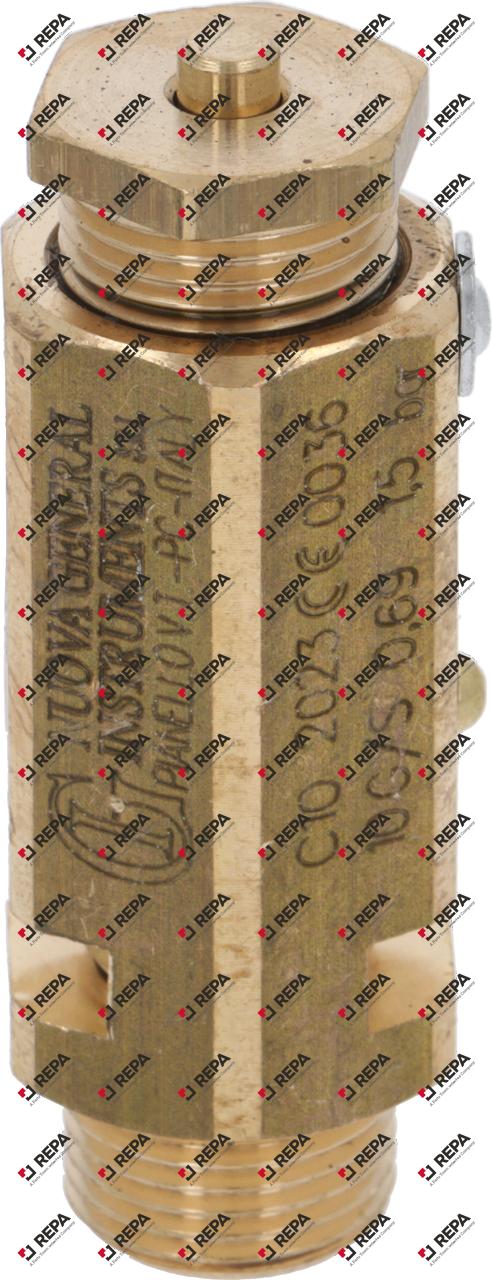 NUOVA GENERAL
INSTRUMENTS
PIANELLO V.T - PC - ITALY
C10 2023 CE 0036
10 G/S 0,69 1,5 bar
REPA